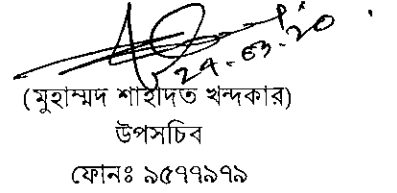 ২৯.০৩.২০
(মুহাম্মদ শাহাদত খন্দকার)
উপসচিব
ফোনঃ ৯৫৭৭৯৭৯